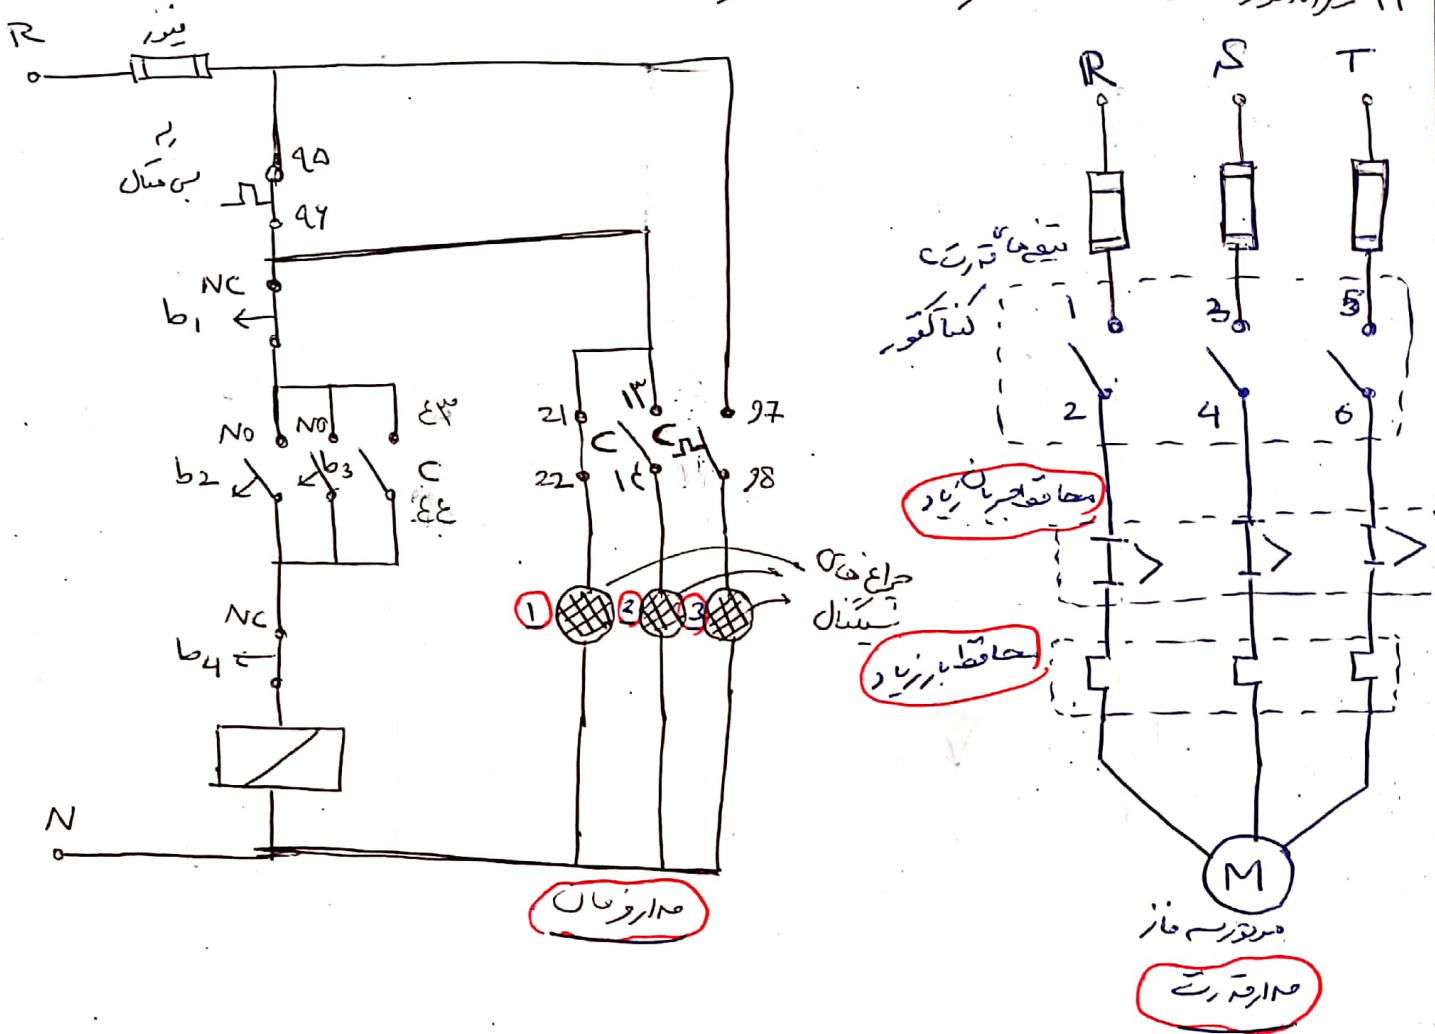 R
فیوز
رله
بی متال
۹۵
۹۶
NC
b1
NO
b2
NO
b3
۴۳
C
۴۴
NC
b4
N
21
22
C
۱۳
۱۴
C
97
98
1
2
3
چراغ های
سیگنال
مدار فرمان
R S T
تیغه های قدرت
کنتاکتور
1 3 5
2 4 6
محافظ جریان زیاد
محافظ بار زیاد
M
موتور سه فاز
مدار قدرت